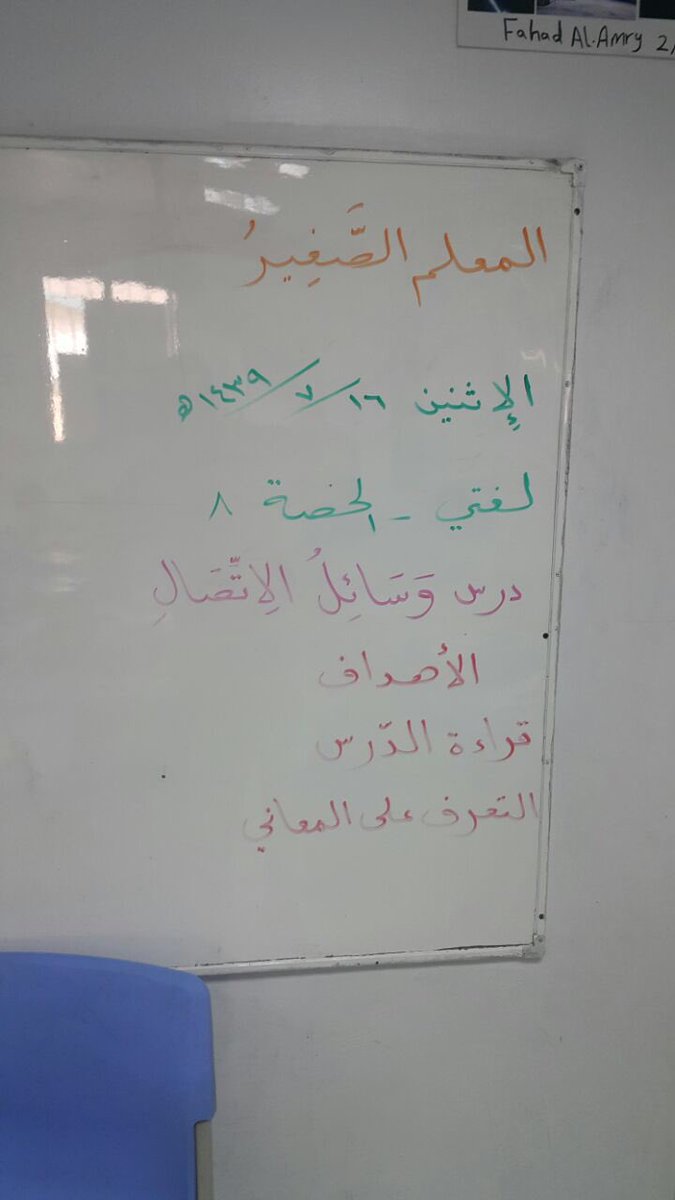 Fahad Al.Amry 2/
المعلم الصَّغِيرُ
الإِثنين ١٦/٧/١٤٣٩هـ
لغتي - الحصة ٨
درس وَسَائِلُ الِاتِّصَالِ
الأهداف
قراءة الدّرس
التعرف على المعاني